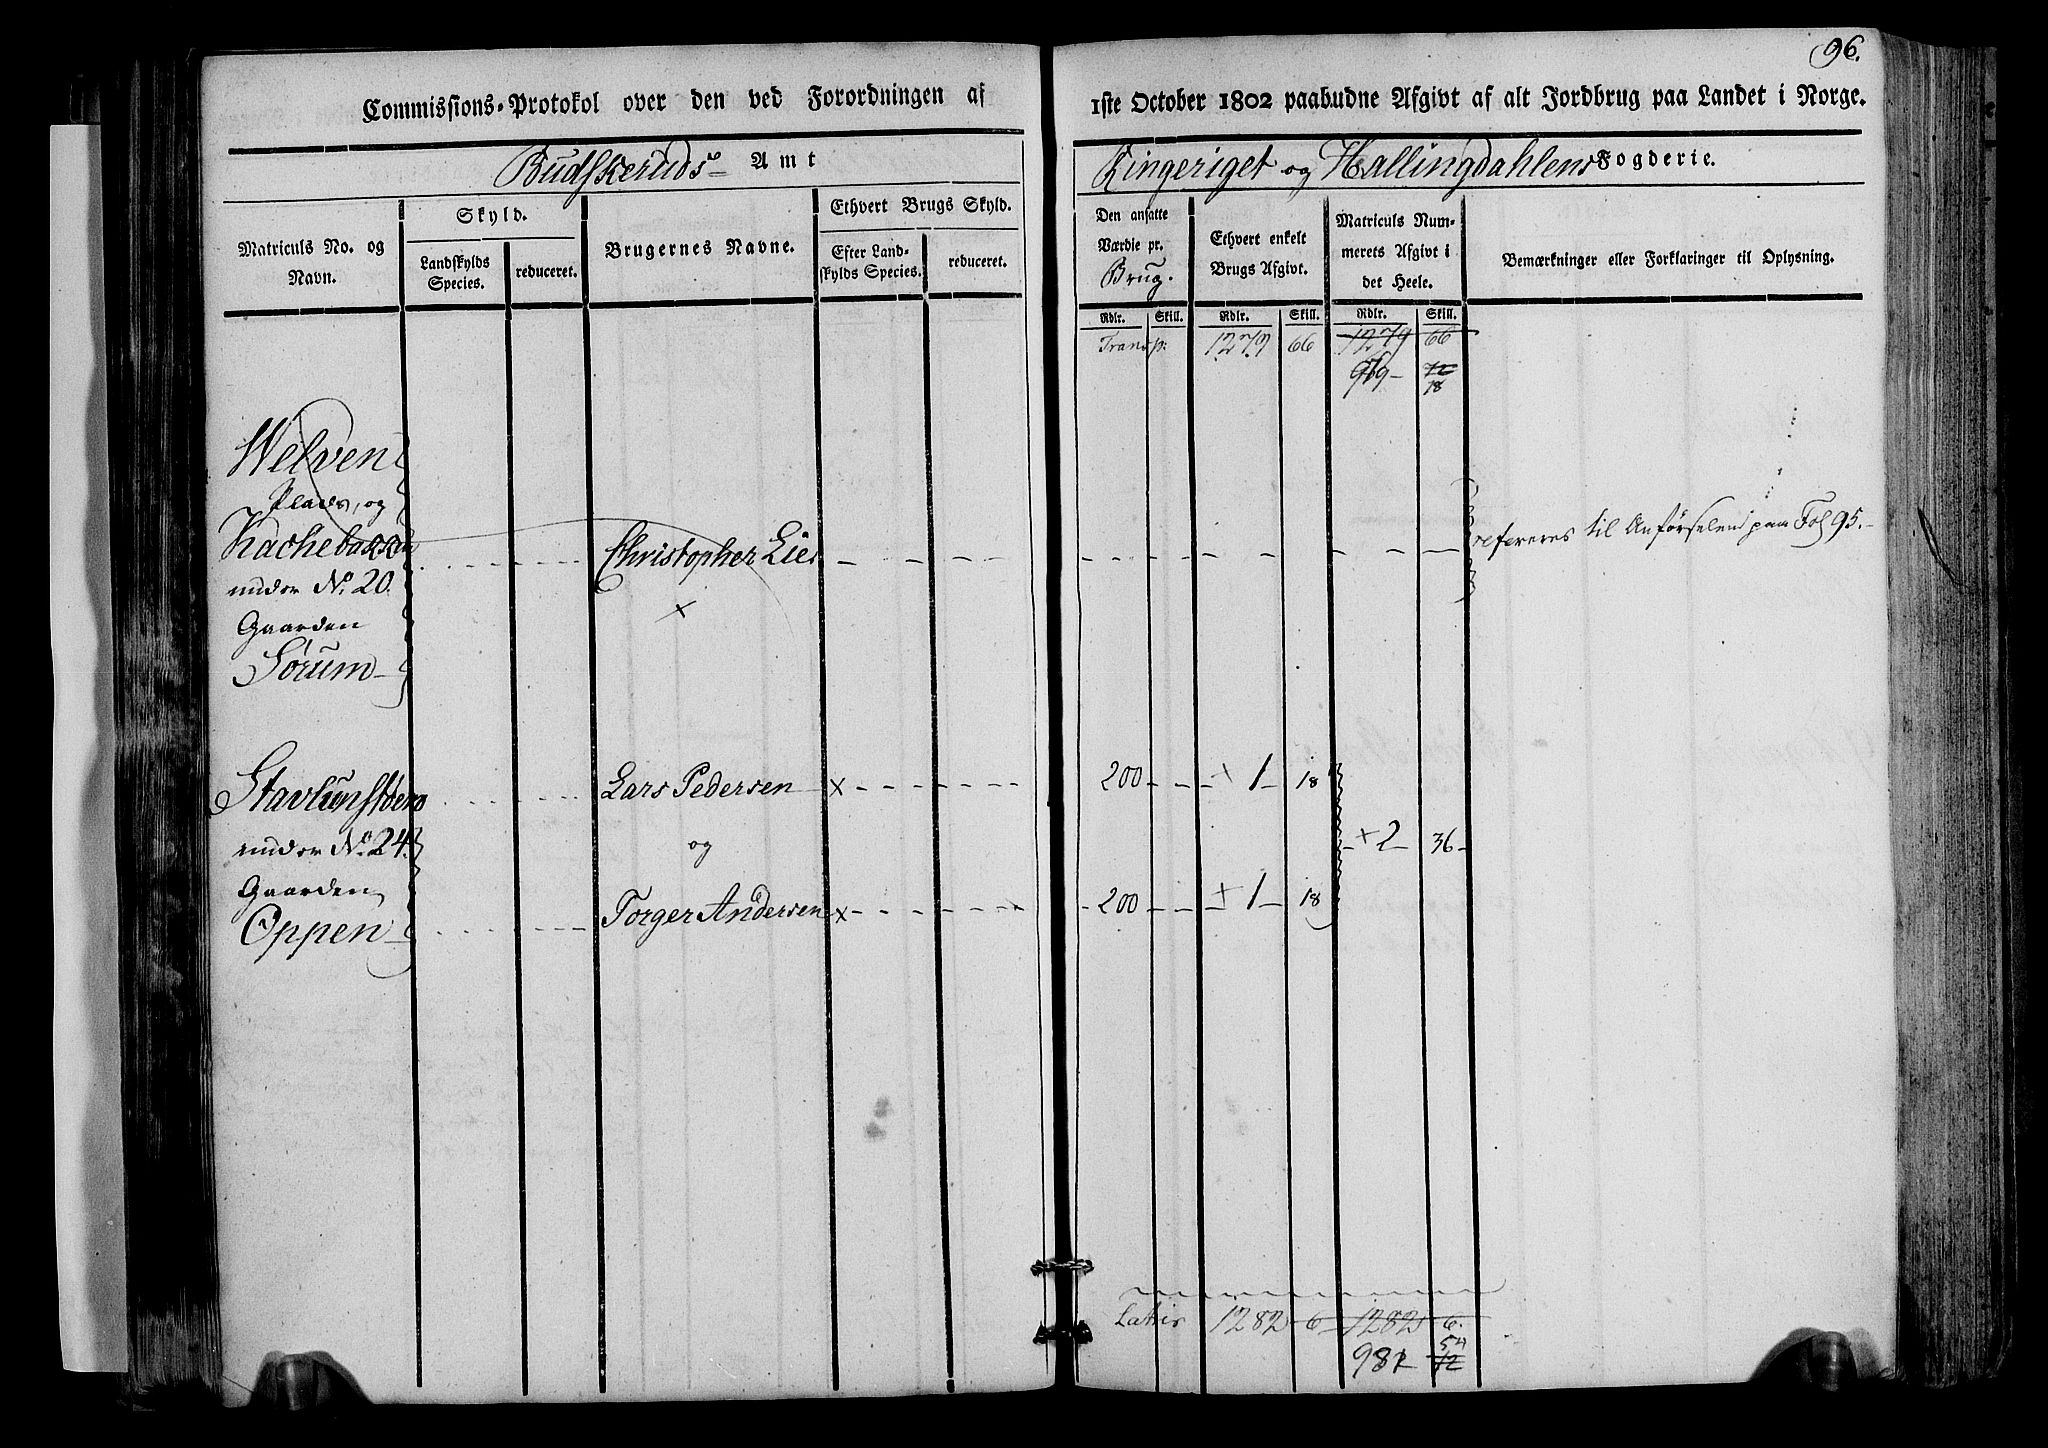 96.
Commissions-Protokol over den ved Forordningen af 1ste October 1802 paabudne Afgivt af alt Jordbrug paa Landet i Norge.
Budskeruds Amt
Ringeriget og Hallingdahlens Fogderie.
Matriculs No. og Navn.
Skyld.
Landskylds Species.
reduceret.
Brugernes Navne.
Ethvert Brugs Skyld.
Efter Landskylds Species.
reduceret.
Den ansatte Værdie pr. Brug.
Ethvert enkelt Brugs Afgivt.
Matriculs Nummerets Afgivt i det Heele.
Bemærkninger eller Forklaringer til Oplysning.
Rdlr. Skill. Rdlr. Skill. Rdlr. Skill.
Transp: 1279 66 1279 66
18
Welven
Plads, og
Kachebakken
under No. 20.
Gaarden
Sørum
Christopher Lie
×
refereres til Anførselen paa Fol 95.
Lars Pedersen × 200 + 1 18
under No. 24.
og
+ 2 36
Gaarden
Oppen
Torger Andersen × 200 + 1 18
Latus 1282 6 1282 6.
54
12